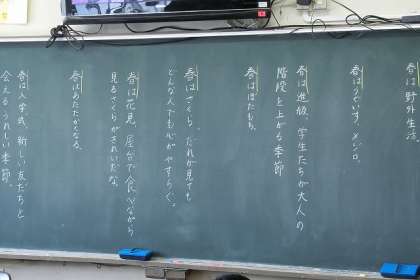 春は野外生活。
春はうぐいす、メジロ。
春は進級、学生たちが大人の
階段を上がる季節
春はぼたもち。
春はさくら、だれが見ても
どんな人でも心がやすらぐ。
春は花見、屋台で食べながら
見るさくらがきれいだな。
春はあたたかくなる。
春は入学式、新しい友だちと
会えるうれしい季節。